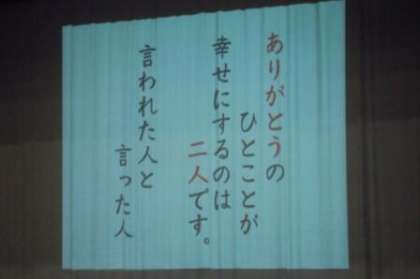 ありがとうの
ひとことが
幸せにするのは
二人です。
言われた人と
言った人